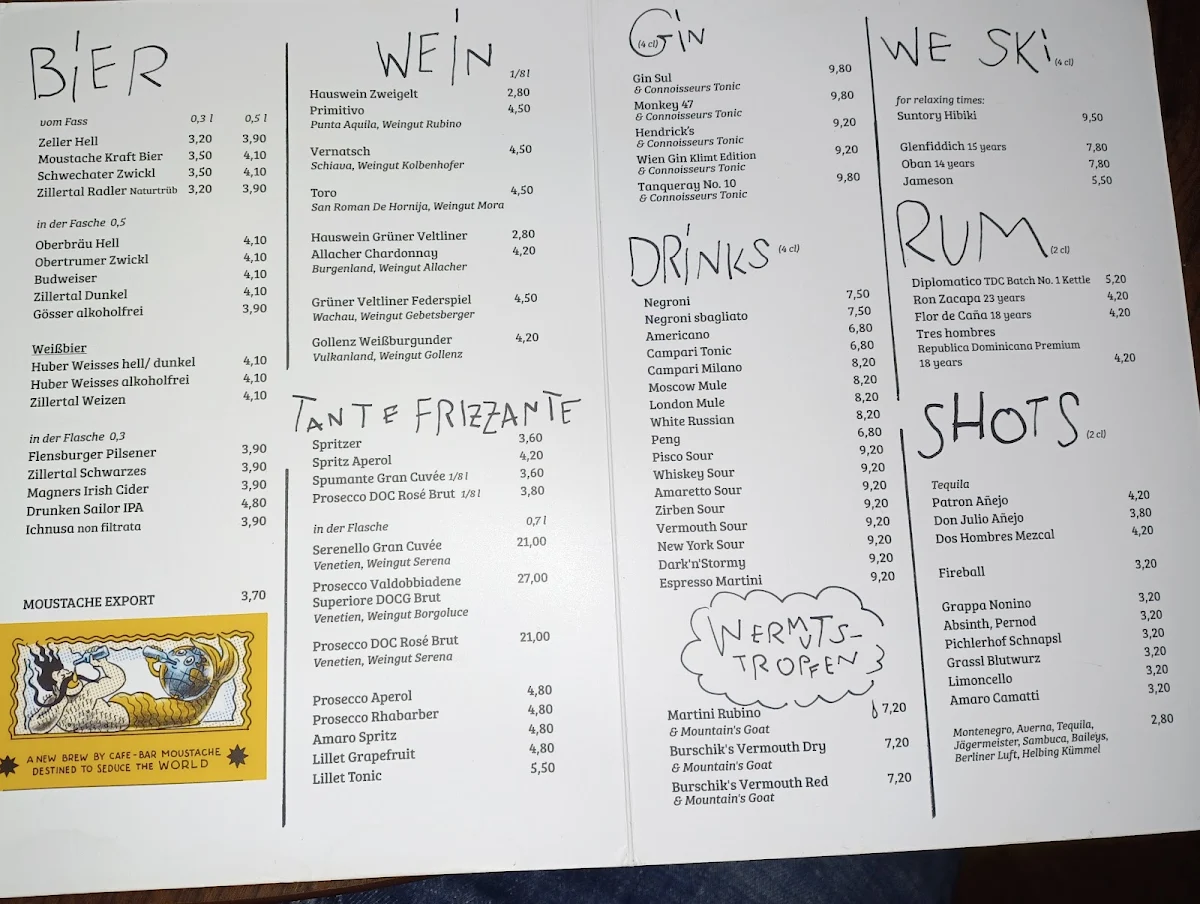 BiER
vom Fass 0,3 l 0,5 l
Zeller Hell 3,20 3,90
Moustache Kraft Bier 3,50 4,10
Schwechater Zwickl 3,50 4,10
Zillertal Radler Naturtrüb 3,20 3,90
in der Fasche 0,5
Oberbräu Hell 4,10
Obertrumer Zwickl 4,10
Budweiser 4,10
Zillertal Dunkel 4,10
Gösser alkoholfrei 3,90
Weißbier
Huber Weisses hell/ dunkel 4,10
Huber Weisses alkoholfrei 4,10
Zillertal Weizen 4,10
in der Flasche 0,3
Flensburger Pilsener 3,90
Zillertal Schwarzes 3,90
Magners Irish Cider 3,90
Drunken Sailor IPA 4,80
Ichnusa non filtrata 3,90
MOUSTACHE EXPORT 3,70
A NEW BREW BY CAFE-BAR MOUSTACHE
DESTINED TO SEDUCE THE WORLD
WEiN
1/8 l
Hauswein Zweigelt 2,80
Primitivo 4,50
Punta Aquila, Weingut Rubino
Vernatsch 4,50
Schiava, Weingut Kolbenhofer
Toro 4,50
San Roman De Hornija, Weingut Mora
Hauswein Grüner Veltliner 2,80
Allacher Chardonnay 4,20
Burgenland, Weingut Allacher
Grüner Veltliner Federspiel 4,50
Wachau, Weingut Gebetsberger
Gollenz Weißburgunder 4,20
Vulkanland, Weingut Gollenz
TANTE FRIZZANTE
Spritzer 3,60
Spritz Aperol 4,20
Spumante Gran Cuvée 1/8 l 3,60
Prosecco DOC Rosé Brut 1/8 l 3,80
in der Flasche 0,7 l
Serenello Gran Cuvée 21,00
Venetien, Weingut Serena
Prosecco Valdobbiadene 27,00
Superiore DOCG Brut
Venetien, Weingut Borgoluce
Prosecco DOC Rosé Brut 21,00
Venetien, Weingut Serena
Prosecco Aperol 4,80
Prosecco Rhabarber 4,80
Amaro Spritz 4,80
Lillet Grapefruit 4,80
Lillet Tonic 5,50
GiN (4 cl)
Gin Sul 9,80
& Connoisseurs Tonic
Monkey 47 9,80
& Connoisseurs Tonic
Hendrick's 9,20
& Connoisseurs Tonic
Wien Gin Klimt Edition 9,20
& Connoisseurs Tonic
Tanqueray No. 10 9,80
& Connoisseurs Tonic
DRiNKS (4 cl)
Negroni 7,50
Negroni sbagliato 7,50
Americano 6,80
Campari Tonic 6,80
Campari Milano 8,20
Moscow Mule 8,20
London Mule 8,20
White Russian 8,20
Peng 6,80
Pisco Sour 9,20
Whiskey Sour 9,20
Amaretto Sour 9,20
Zirben Sour 9,20
Vermouth Sour 9,20
New York Sour 9,20
Dark'n'Stormy 9,20
Espresso Martini 9,20
WERMUTS-
TROPFEN
Martini Rubino 7,20
& Mountain's Goat
Burschik's Vermouth Dry 7,20
& Mountain's Goat
Burschik's Vermouth Red 7,20
& Mountain's Goat
WE SKi (4 cl)
for relaxing times:
Suntory Hibiki 9,50
Glenfiddich 15 years 7,80
Oban 14 years 7,80
Jameson 5,50
RUM (2 cl)
Diplomatico TDC Batch No. 1 Kettle 5,20
Ron Zacapa 23 years 4,20
Flor de Caña 18 years 4,20
Tres hombres
Republica Dominicana Premium
18 years 4,20
SHOTS (2 cl)
Tequila
Patron Añejo 4,20
Don Julio Añejo 3,80
Dos Hombres Mezcal 4,20
Fireball 3,20
Grappa Nonino 3,20
Absinth, Pernod 3,20
Pichlerhof Schnapsl 3,20
Grassl Blutwurz 3,20
Limoncello 3,20
Amaro Camatti 3,20
Montenegro, Averna, Tequila, 2,80
Jägermeister, Sambuca, Baileys,
Berliner Luft, Helbing Kümmel